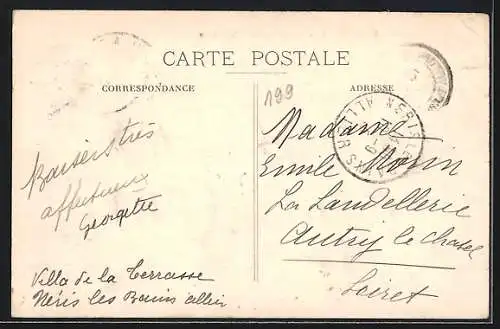 CARTE POSTALE
CORRESPONDANCE
ADRESSE
199
Baisers très
affectueux
Georgette
Villa de la Terrasse
Néris les Bains allier
Madame
Emile Morin
La Landellerie
Autry le chatel
Loiret
NERIS-LES-BAINS
ALLIER